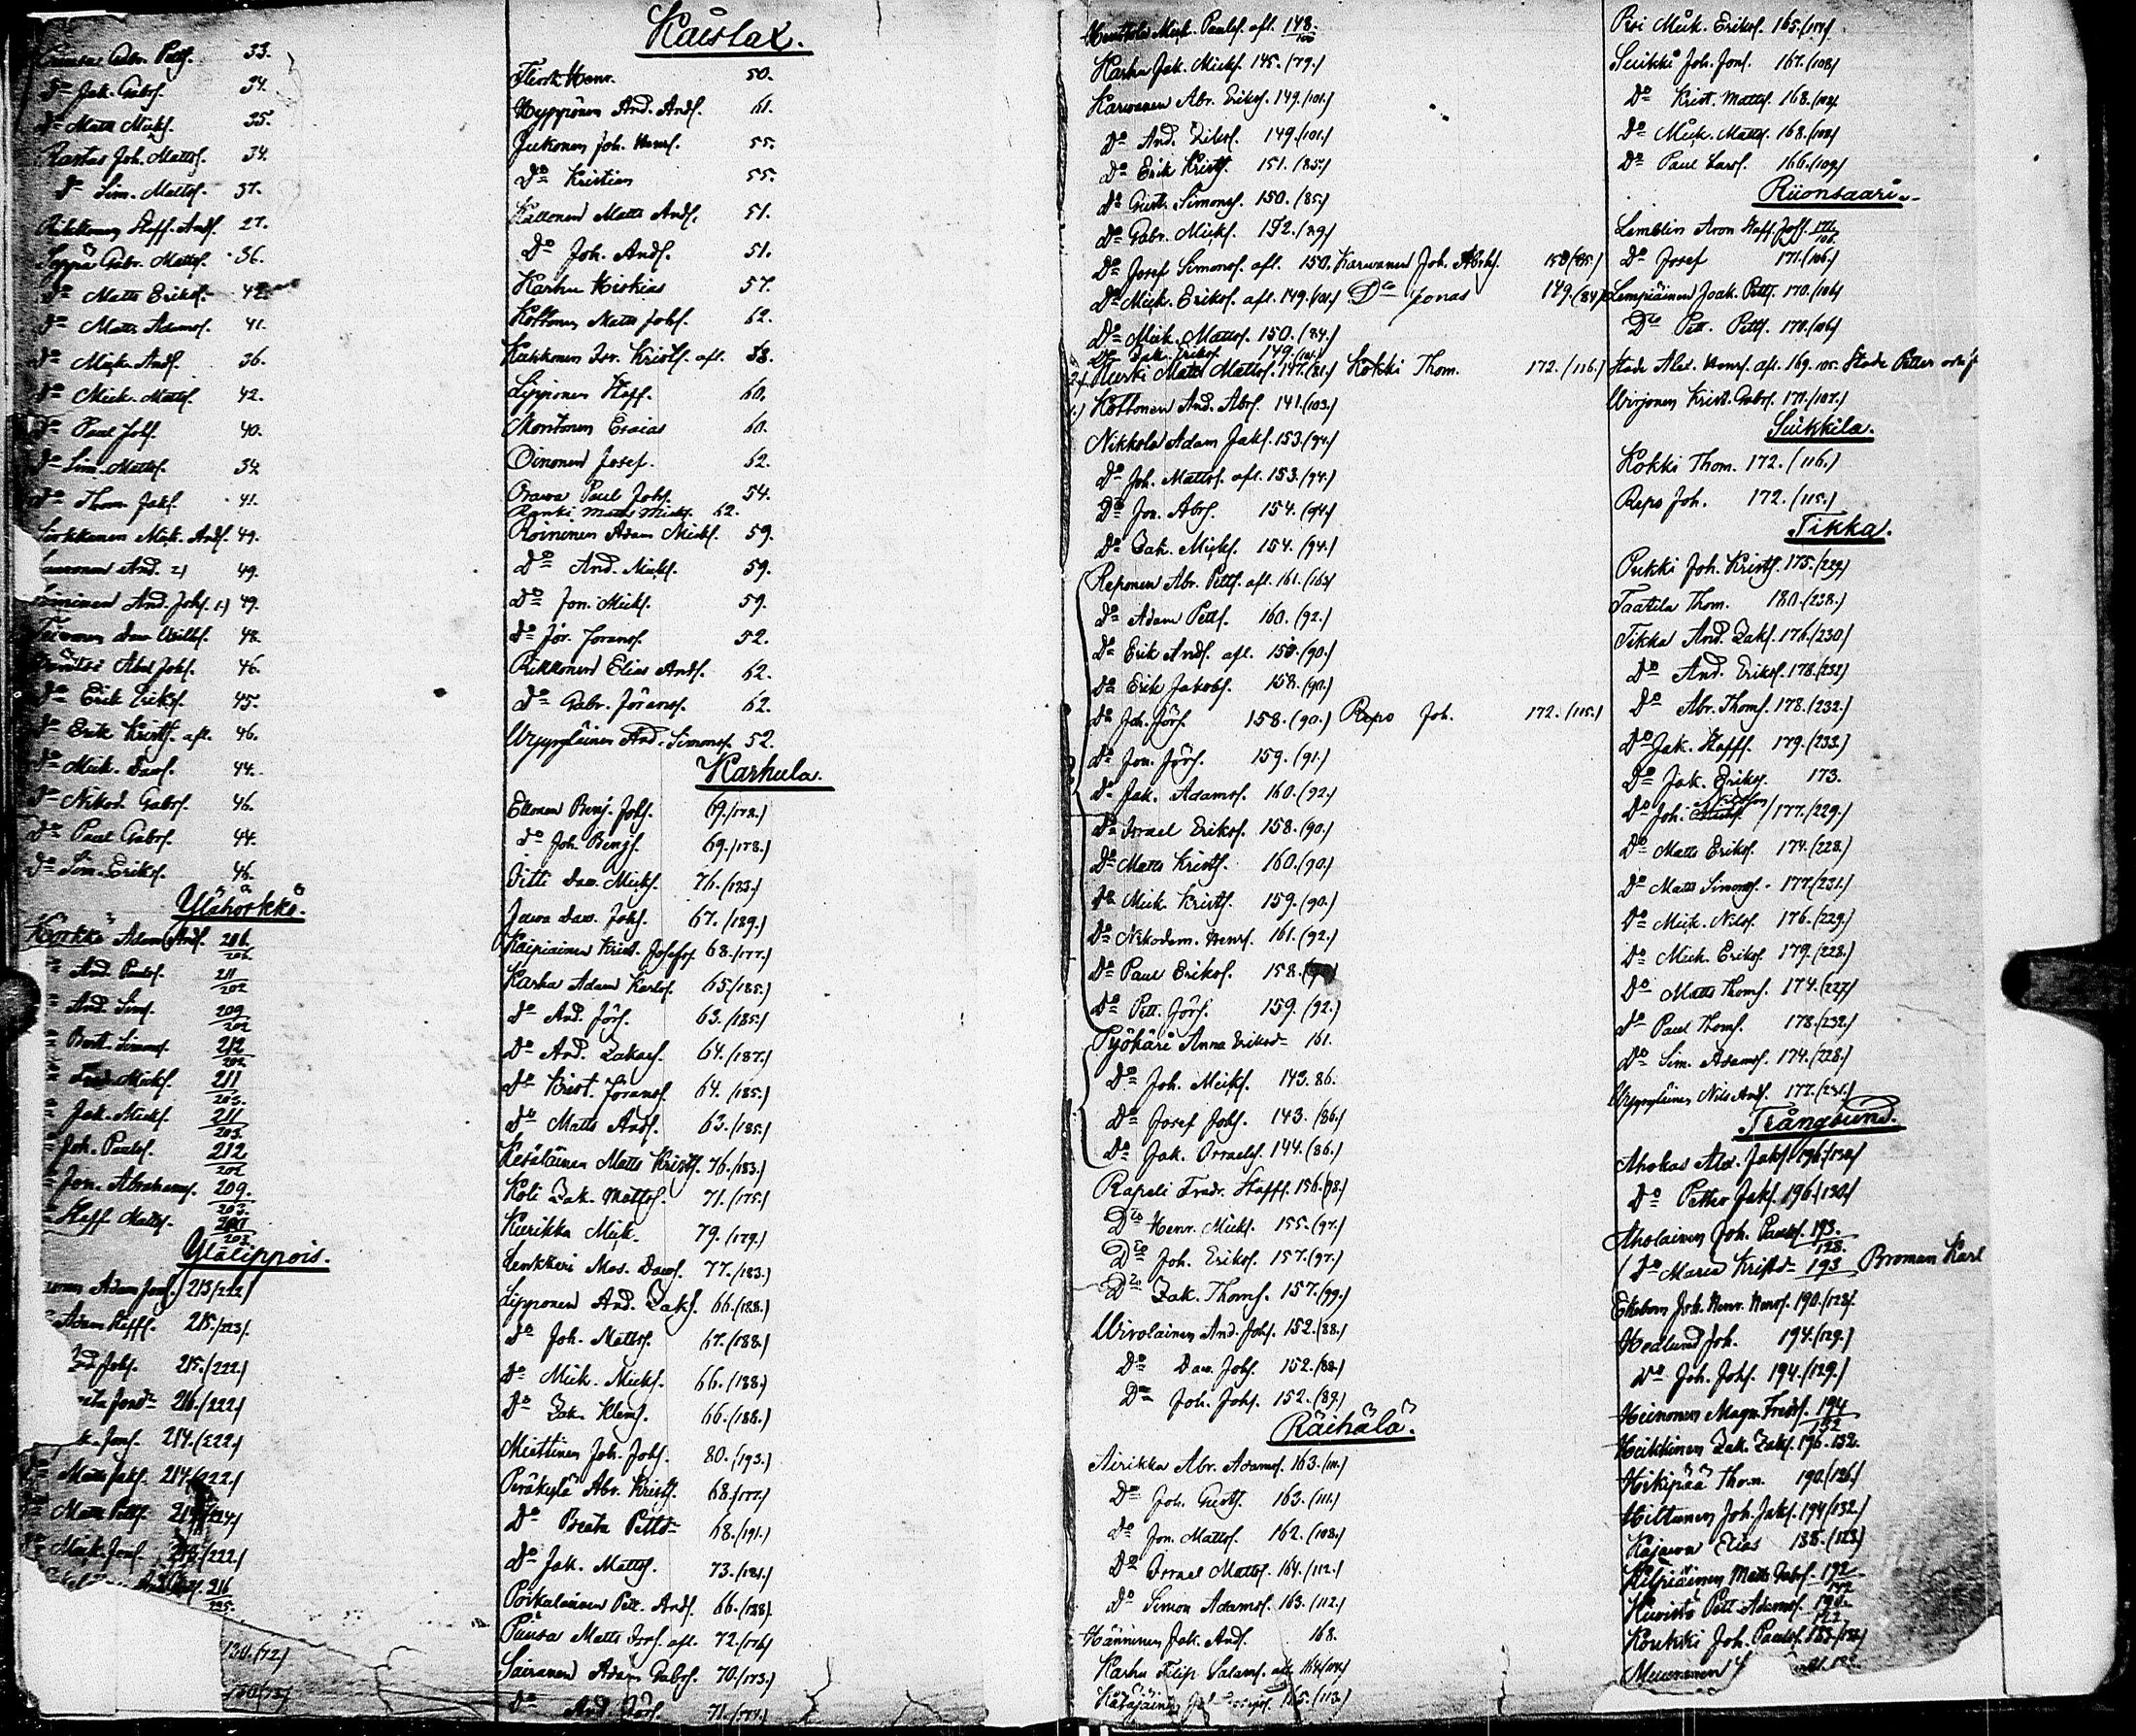 Adr. Petts. 33.
Do Jak. Gabrs. 34.
Do Matts Micks. 35.
Rastas Joh. Matts. 34.
Do Sim. Matts. 37.
Staff. Ands. 27.
Seppä Gabr. Matts. 36.
Do Matts Eriks. 42.
Do Matts Adams. 41.
Do Mick. Ands. 36.
Do Mick. Matts. 42.
Do Paul Johs. 40.
Do Sim. Matts. 34.
Do Thom. Jaks. 41.
Sirkkanen Mick. Ands. 49.
And. 2) 49.
And. Johs. 1.) 49.
Daw. Willks. 48.
Abel Johs. 46.
Do Erik Eriks. 45.
Do Erik Krists. afl. 46.
Do Mick. Daws. 44.
Do Nikod. Gabrs. 46.
Do Paul Gabrs. 44.
Do Sim. Eriks. 46.
Ylähorkkä.
Horkkä Adam Ands. 206.
And. Pauls. 211/202
And. Sims. 209/202
Bert. Simons. 212/202
Fredr. Micks. 211/203.
Jak. Micks. 211/203.
Joh. Pauls. 212/202
Jon. Abrahams. 209./203.
Staff. Matts. 207/203.
Ylälippois.
Adam Jons. 213/222)
Adam Staffs. 215./223/.
Johs. 215./222.)
Jonsdr 216./222)
Jons. 214./222.)
Matts Jaks. 214/222.)
Matts Petts.
Mick. Jons. /222.)
216
130.(72)
Kaislax.
Flink Henr. 50.
Hyppönen And. Ands. 61.
Jukonen Joh. Henrs. 55.
Do Kristian 55.
Kallonen Matts Ands. 51.
Do Joh. Ands. 51.
Karhu Hiskias 57.
Kottonen Matts Johs. 62.
Kukkonen Isr. Krists. afl. 58.
Lipponen Staff. 60.
Montonen Esaias 60.
Oinonen Josef. 62.
Orawa Paul Johs. 54.
Ranki Matts Micks. 62.
Roininen Adam Micks. 59.
Do And. Micks. 59.
Do Jon. Micks. 59.
Do Jör. Jörans. 52.
Rikkonen Elias Ands. 62.
Do Gabr. Jörans. 62.
Urpiläinen And. Simons. 52.
Karhula.
Ellonen Benj. Johs. 69./178.)
Do Joh. Benjs. 69./178.)
Jitti Daw. Micks. 76./183.)
Jawa Daw. Johs. 67./189.)
Kaipiainen Krist. Josefs. 68./177.)
Karhu Adam Karls. 65./185.)
Do And. Jörs. 63./185.)
Do And. Zakars. 64./187.)
Do Krist. Jörans. 64./185.)
Do Matts Ands. 63./185.)
Kesäläinen Matts Krists. 76./183.)
Koli Zak. Matts. 71./175.)
Kurikka Mick. 79./179.)
Lenkkeri Mos. Daws. 77./183.)
Lipponen And. Zaks. 66./188.)
Do Joh. Matts. 67./188.)
Do Mick. Micks. 66./188.)
Do Zak. Klems. 66./188.)
Miettinen Joh. Johs. 80./193.)
Peräkylä Abr. Krists. 68./177.)
Do Beata Pettsdr 68./191.)
Do Jak. Matts. 73./181.)
Poikalainen Pett. Ands. 66./188).
Puusa Matts Isrs. afl. 72./176)
Sairanen Adam Gabrs. 70./173.)
Do And. Jörs. 71./177.)
Mick. Pauls. afl. 148./100
Karhu Jak. Micks. 145./79.)
Karwanen Abr. Eriks. 149./101.)
Do And. Eriks. 149./101.)
Do Erik Krists. 151./85.)
Do Gust. Simons. 150./85.)
Do Gabr. Micks. 152./89)
Do Josef Simons. afl. 150. Karwanen Joh. Abrhs. 150/85.)
Do Mick. Eriks. afl. 149./101.) Dto Jonas 149./84)
Do Mick. Matts. 150./84.)
Do Zak. Eriks. 149./101.)
2.) Kurki Matts Matts. 147./81.) Kokki Thom. 172./116.)
1.) Kottonen And. Abrs. 141./103.)
Nikkola Adam Jaks. 153./94.)
Do Joh. Matts. afl. 153./94.)
Do Jon. Abrs. 154./94.)
Do Zak. Micks. 154./94.)
Reponen Abr. Petts. afl. 161./163)
Do Adam Petts. 160./92.)
Do Erik Ands. afl. 159./90.)
Do Erik Jakobs. 158./90.)
Do Joh. Jörs. 158./90.) Repo Joh. 172./115.)
Do Jon. Jörs. 159./91.)
Do Jak. Adams. 160./92.)
Do Israel Eriks. 158./90.)
Do Matts Krists. 160./90.)
Do Mick. Krists. 159./90.)
Do Nikodem. Henrs. 161./92.)
Do Paul Eriks. 158.
Do Pett. Jörs. 159./92.)
Pyökäri Anna Eriksdr 161.
Do Joh. Micks. 143.86.
Do Josef Johs. 143./86.)
Do Jak. Israels. 144./86.)
Rapeli Fredr. Staffs. 156./98.)
Dto Henr. Micks. 155./97.)
Dto Joh. Eriks. 157./97.)
Dto Zak. Thoms. 157./99.)
Wirolainen And. Johs. 152./88.)
Do Daw. Johs. 152./88.)
Do Joh. Johs. 152./89.)
Räihälä.
Airikka Abr. Adams. 163./111.)
Do Joh. Gusts. 163./111.)
Do Jon. Matts. 162./108.)
Do Israel Matts. 164./112.)
Do Simon Adams. 163./112.)
Hänninen Jak. Ands. 168.
Karhu Filip Salams. afl. 164/104)
165./113.)
Pesi Mick. Eriks. 165./101)
Suikki Joh. Jons. 167./108)
Do Krist. Matts. 168./108)
Do Mick. Matts. 168./108)
Do Paul Lars. 166./109)
Riionsaari.
Lemblin Aron Staff. Joss. 171/106.
Do Josef 171./106.)
Lempiäinen Joak. Petts. 170./106)
Dto Pett. Petts. 170./106)
Stade Alex. Henrs. afl. 169. 105. Stade Petter
Wirjonen Krist. Gabrs. 171./107.)
Suikkila.
Kokki Thom. 172./116.)
Repo Joh. 172./115.)
Tikka.
Pukki Joh. Krists. 175./229)
Taatila Thom. 180./238.)
Tikka And. Zaks. 176./230)
Do And. Eriks. 178./232)
Do Abr. Thoms. 178./232.)
Do Jak. Staffs. 179./233.)
Do Jak. Eriks. 173.
Do Joh. Ericksson /177./229.)
Do Matts Eriks. 174./228.)
Do Matts Simons. 177./231.)
Do Mick. Nils. 176./229.)
Do Mick. Eriks. 179./228.)
Do Matts Thoms. 174./227)
Do Paul Thoms. 178./232.)
Do Sim. Adams. 174./228.)
Urpiläinen Nils Ands. 177./231.)
Trångsund.
Ahokas Alex. Jaks. 196./130)
Do Petter Jaks. 196./130.)
Aholainen Joh. Pauls. 193./128.
Do Maria Kristsdr 193 Broman Karl
Ekebom Joh. Henr. Henrs. 190./128).
Hedlund Joh. 194./129.)
Do Joh. Johs. 194./129.)
Heinonen Magn. Fredrs. 194/132
Heikkinen Zak. Zaks. 196.132.
Hikipää Thom. 190./126.)
Hiltunen Joh. Jaks. 194/132.)
Kajawa Elias 188./123)
Kilpiäinen Matts Gabrs. 192
Kuristo Pett. Adams. 190.
Koukki Joh. Pauls.